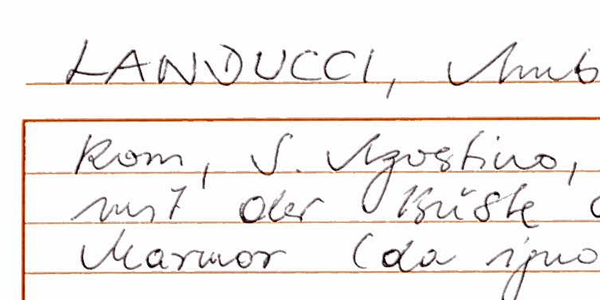 LANDUCCI, Amb
Rom, S. Agostino,
mit der Büste
Marmor (da igno